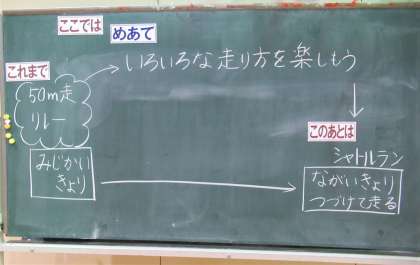 ここでは
めあて
いろいろな走り方を楽しもう
これまで
50m走
リレー
みじかい
きょり
このあとは
シャトルラン
ながいきょり
つづけて走る